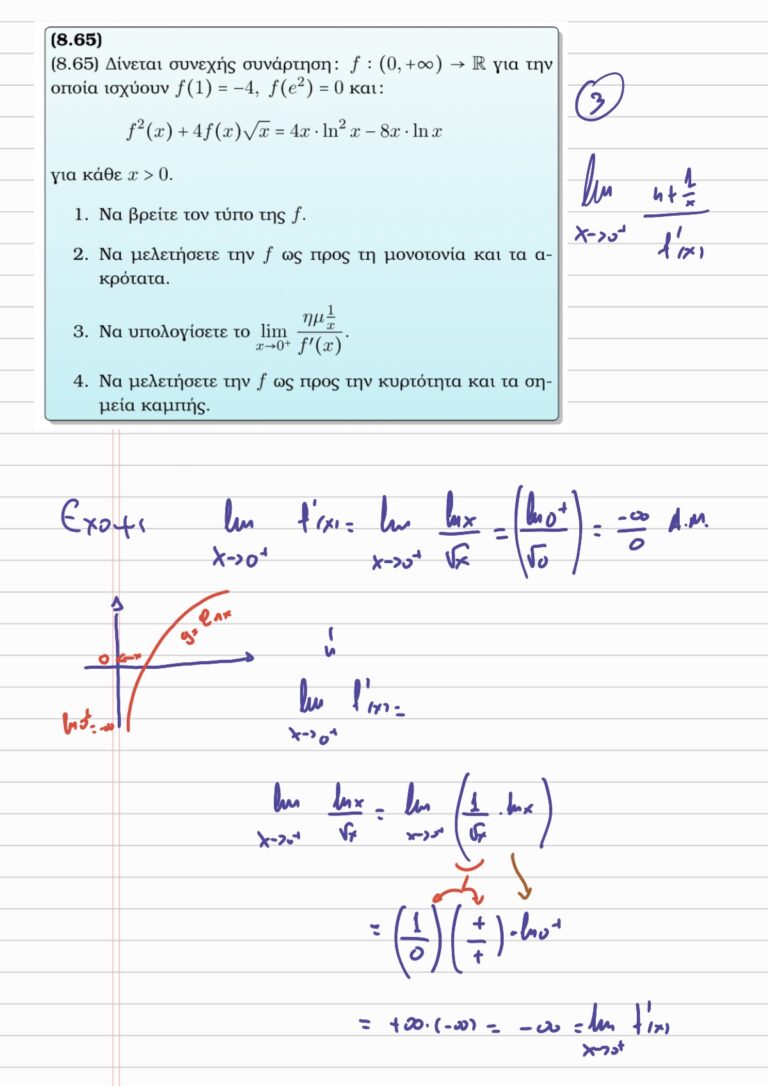 (8.65)
(8.65) Δίνεται συνεχής συνάρτηση: f : (0, +∞) → ℝ για την
οποία ισχύουν f(1) = −4, f(e²) = 0 και:
f²(x) + 4f(x)√x = 4x · ln² x − 8x · ln x
για κάθε x > 0.
1. Να βρείτε τον τύπο της f.
2. Να μελετήσετε την f ως προς τη μονοτονία και τα α-
κρότατα.
3. Να υπολογίσετε το lim x→0⁺ ημ 1/x / f′(x).
4. Να μελετήσετε την f ως προς την κυρτότητα και τα ση-
μεία καμπής.
3
lim x→0⁺ η+ 1/x / f′(x)
Εχουμε lim x→0⁺ f′(x) = lim x→0⁺ lnx/√x = (ln0⁺/√0) = −∞/0 Α.Μ.
y=lnx
0
ln0⁺=-∞
ή
lim x→0⁺ f′(x) =
lim x→0⁺ lnx/√x = lim x→0⁺ (1/√x · lnx)
= (1/0) (+/+) · ln0⁺
= +∞·(−∞) = −∞ = lim x→0⁺ f′(x)